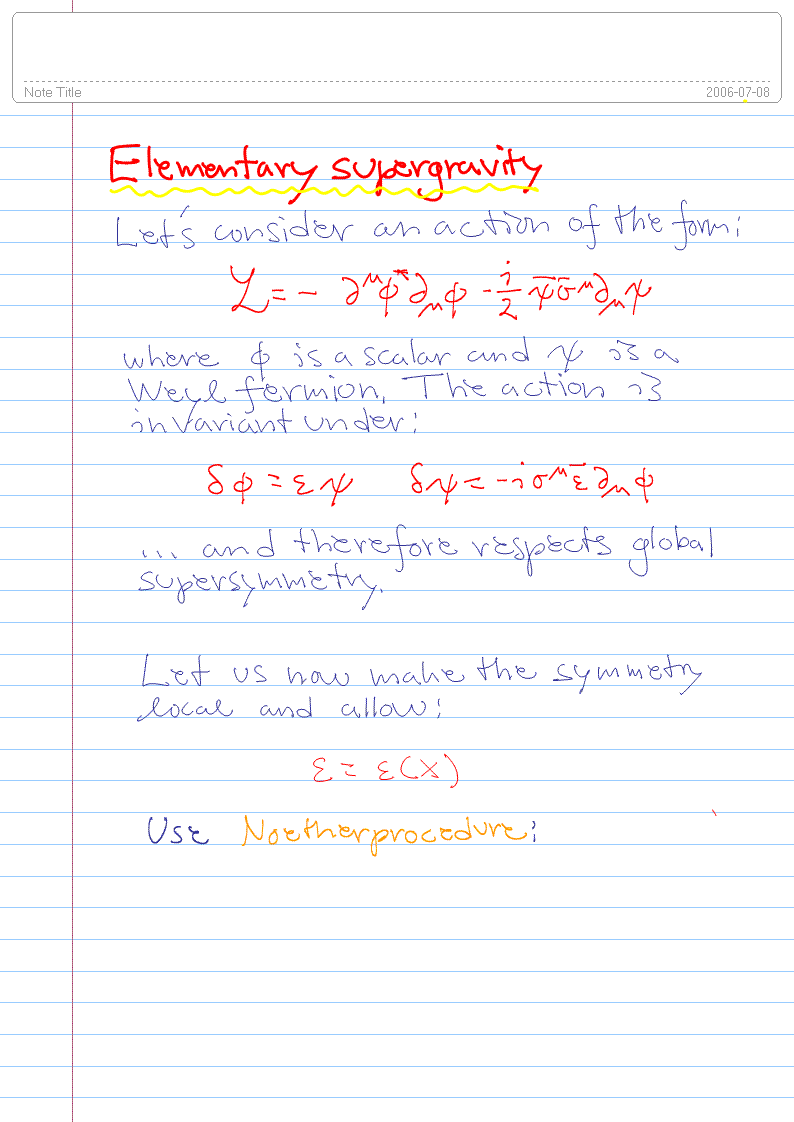 Note Title
2006-07-08
Elementary supergravity
Let's consider an action of the form:
ℒ = - ∂^μ φ* ∂_μ φ - i/2 ψ̄ σ̄^μ ∂_μ ψ
where φ is a scalar and ψ is a
Weyl fermion. The action is
invariant under:
δφ = εψ δψ = -iσ^μ ε̄ ∂_μ φ
... and therefore respects global
supersymmetry.
Let us now make the symmetry
local and allow:
ε = ε(x)
Use Noether procedure: